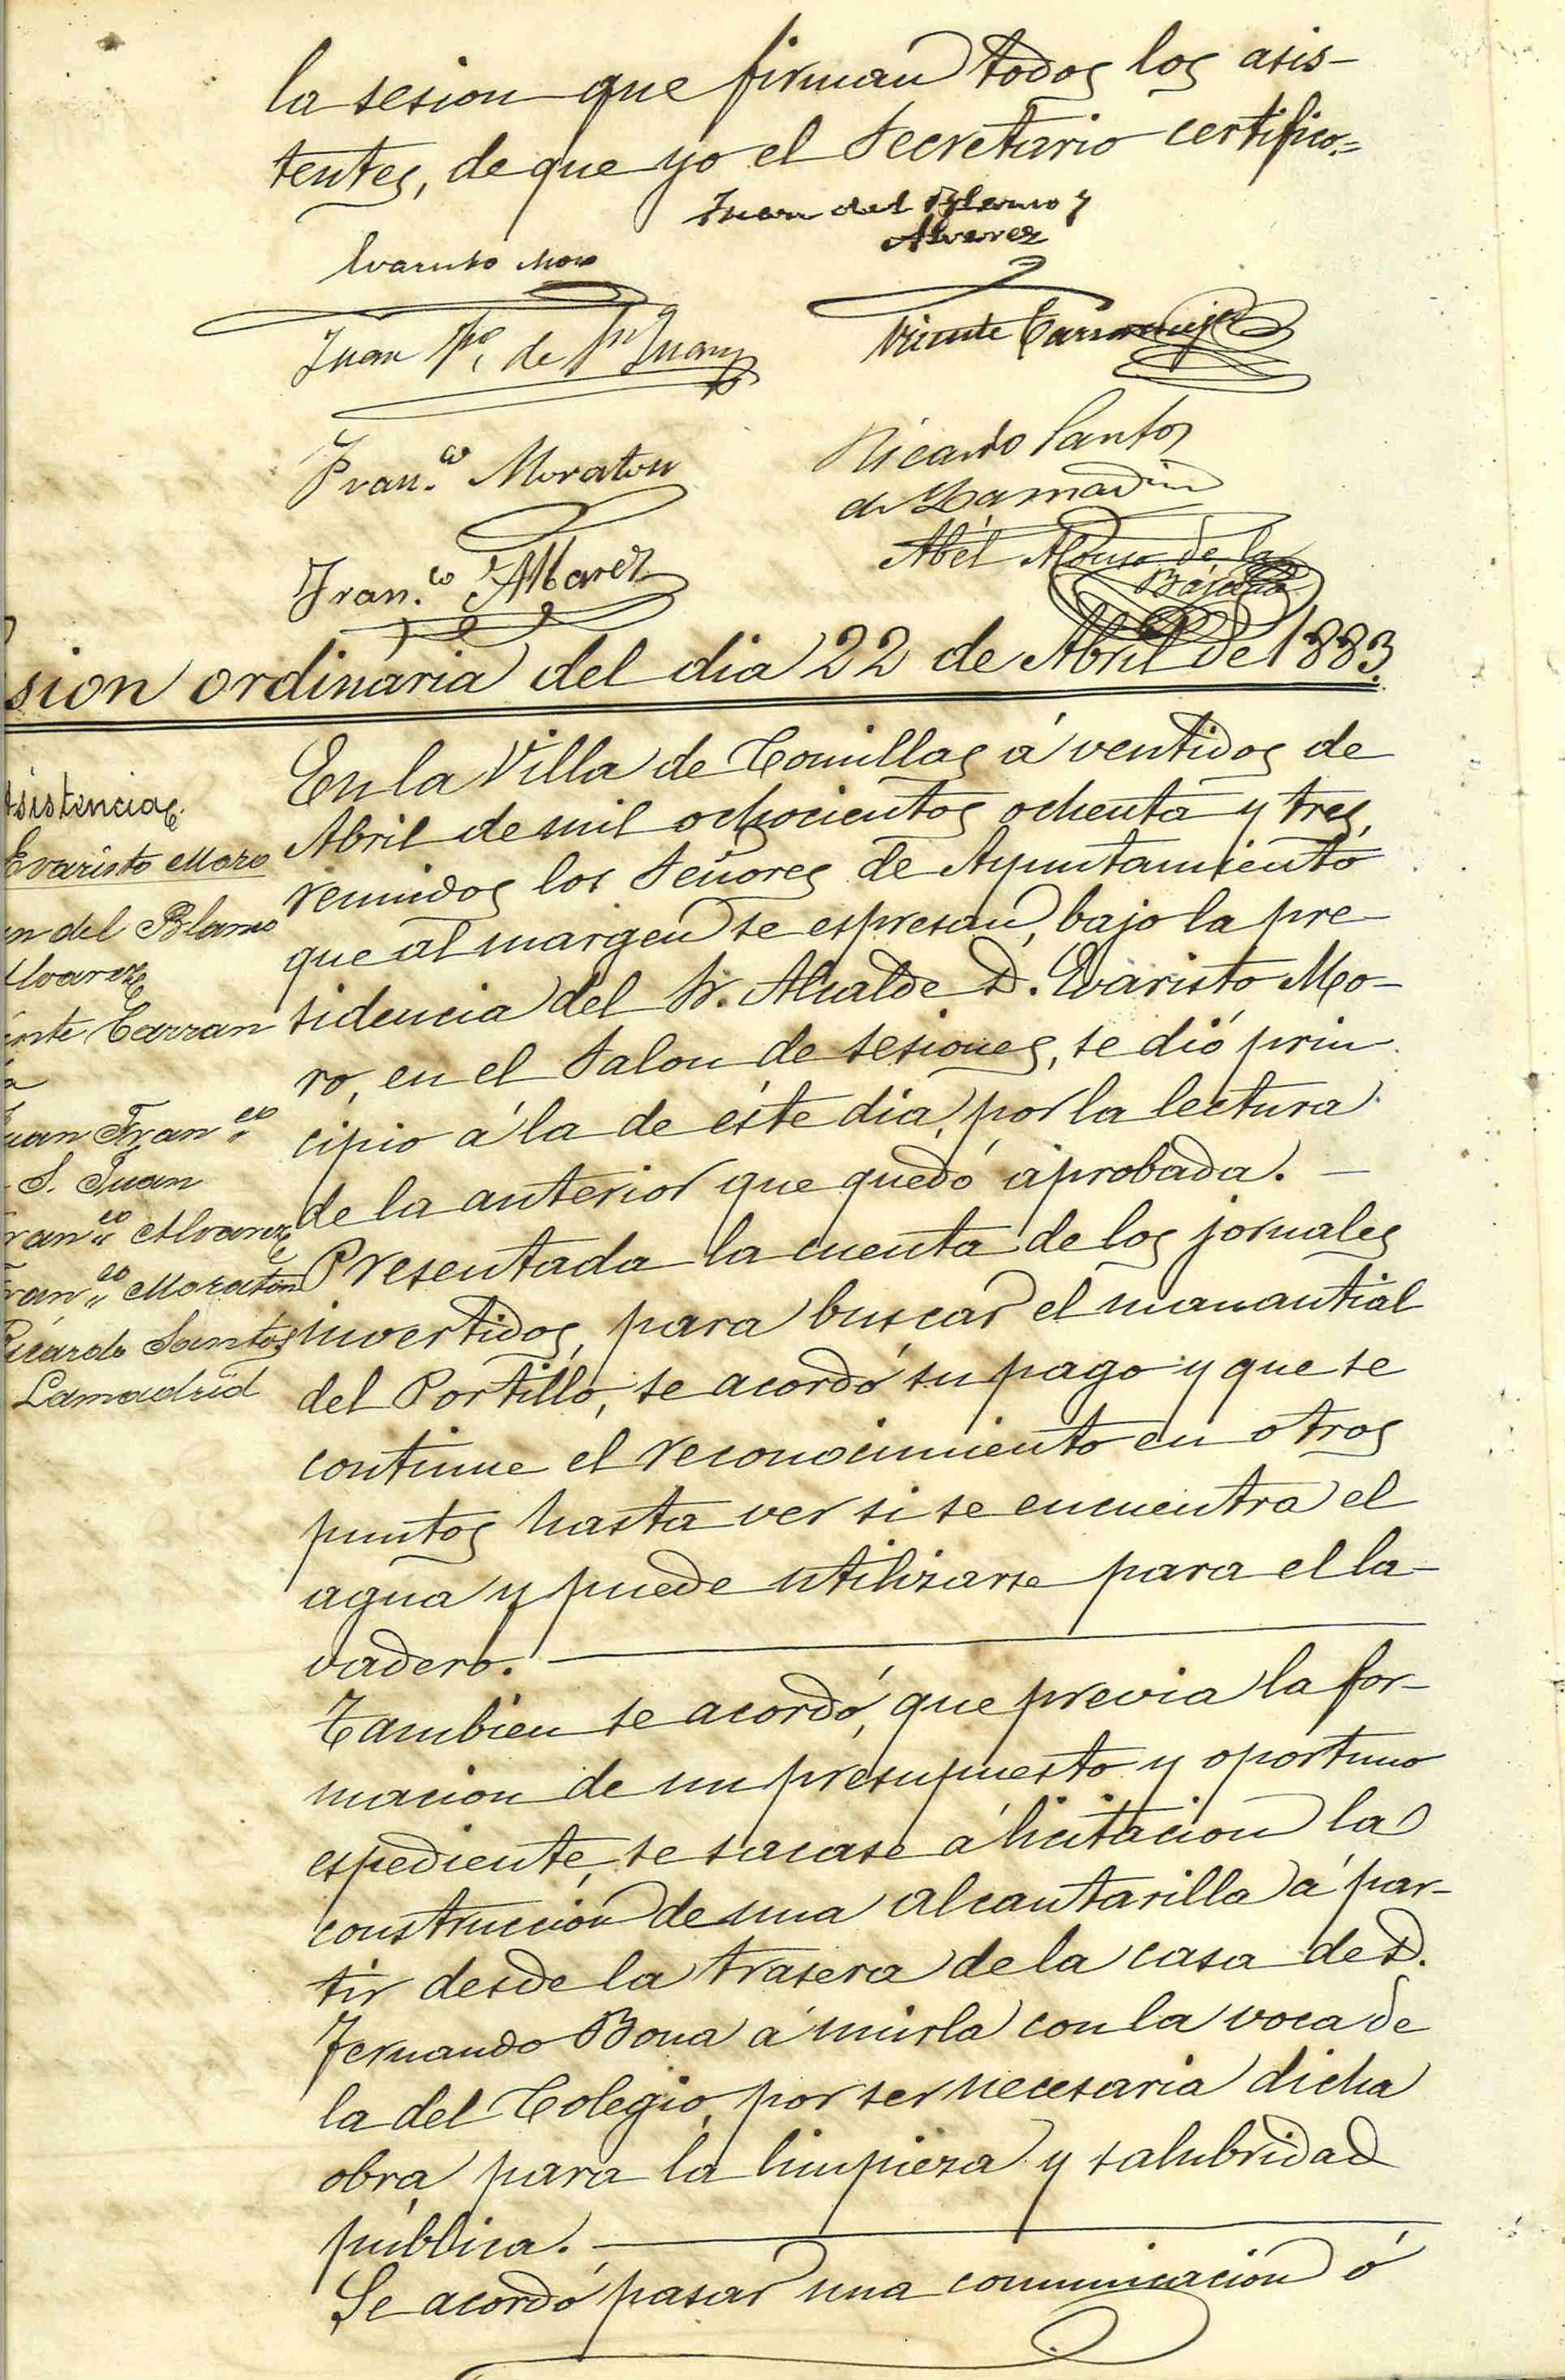 la sesion que firman todos los asis-
tentes, de que yo el Secretario certifico.=
Juan del Blanco y
Alvarez
Evaristo Moro
Juan Fco de Sn Juan
Vicente Carranceja
Franco Moraton
Ricardo Santos
de Lamadrid
Franco Alvarez
Abél Alonso de la
Bárcena
sion ordinaria del dia 22 de Abril de 1883.
sistencias.
Evaristo Moro
an del Blanco
lvarez
ente Carran
a
uan Franco
S. Juan
ranco Alvarez
ranco Moraton
Ricardo Santos
Lamadrid
En la Villa de Comillas á ventidos de
Abril de mil ochocientos ochenta y tres,
reunidos los Señores de Ayuntamiento
que al margen se espresan, bajo la pre-
sidencia del Sr. Alcalde D. Evaristo Mo-
ro, en el Salon de sesiones, se dió prin-
cipio á la de éste dia, por la lectura
de la anterior que quedó aprobada. —
Presentada la cuenta de los jornales
invertidos, para buscar el manantial
del Portillo, se acordó su pago y que se
continue el reconocimiento en otros
puntos hasta ver si se encuentra el
agua y puede utilizarse para el la-
vadero. —
Tambien se acordó, que previa la for-
macion de un presupuesto y oportuno
espediente, se sacase á licitacion la
construccion de una alcantarilla á par-
tir desde la trasera de la casa de D.
Fernando Bona á unirla con la voca de
la del Colegio, por ser necesaria dicha
obra para la limpieza y salubridad
pública. —
Se acordó pasar una comunicacion ó